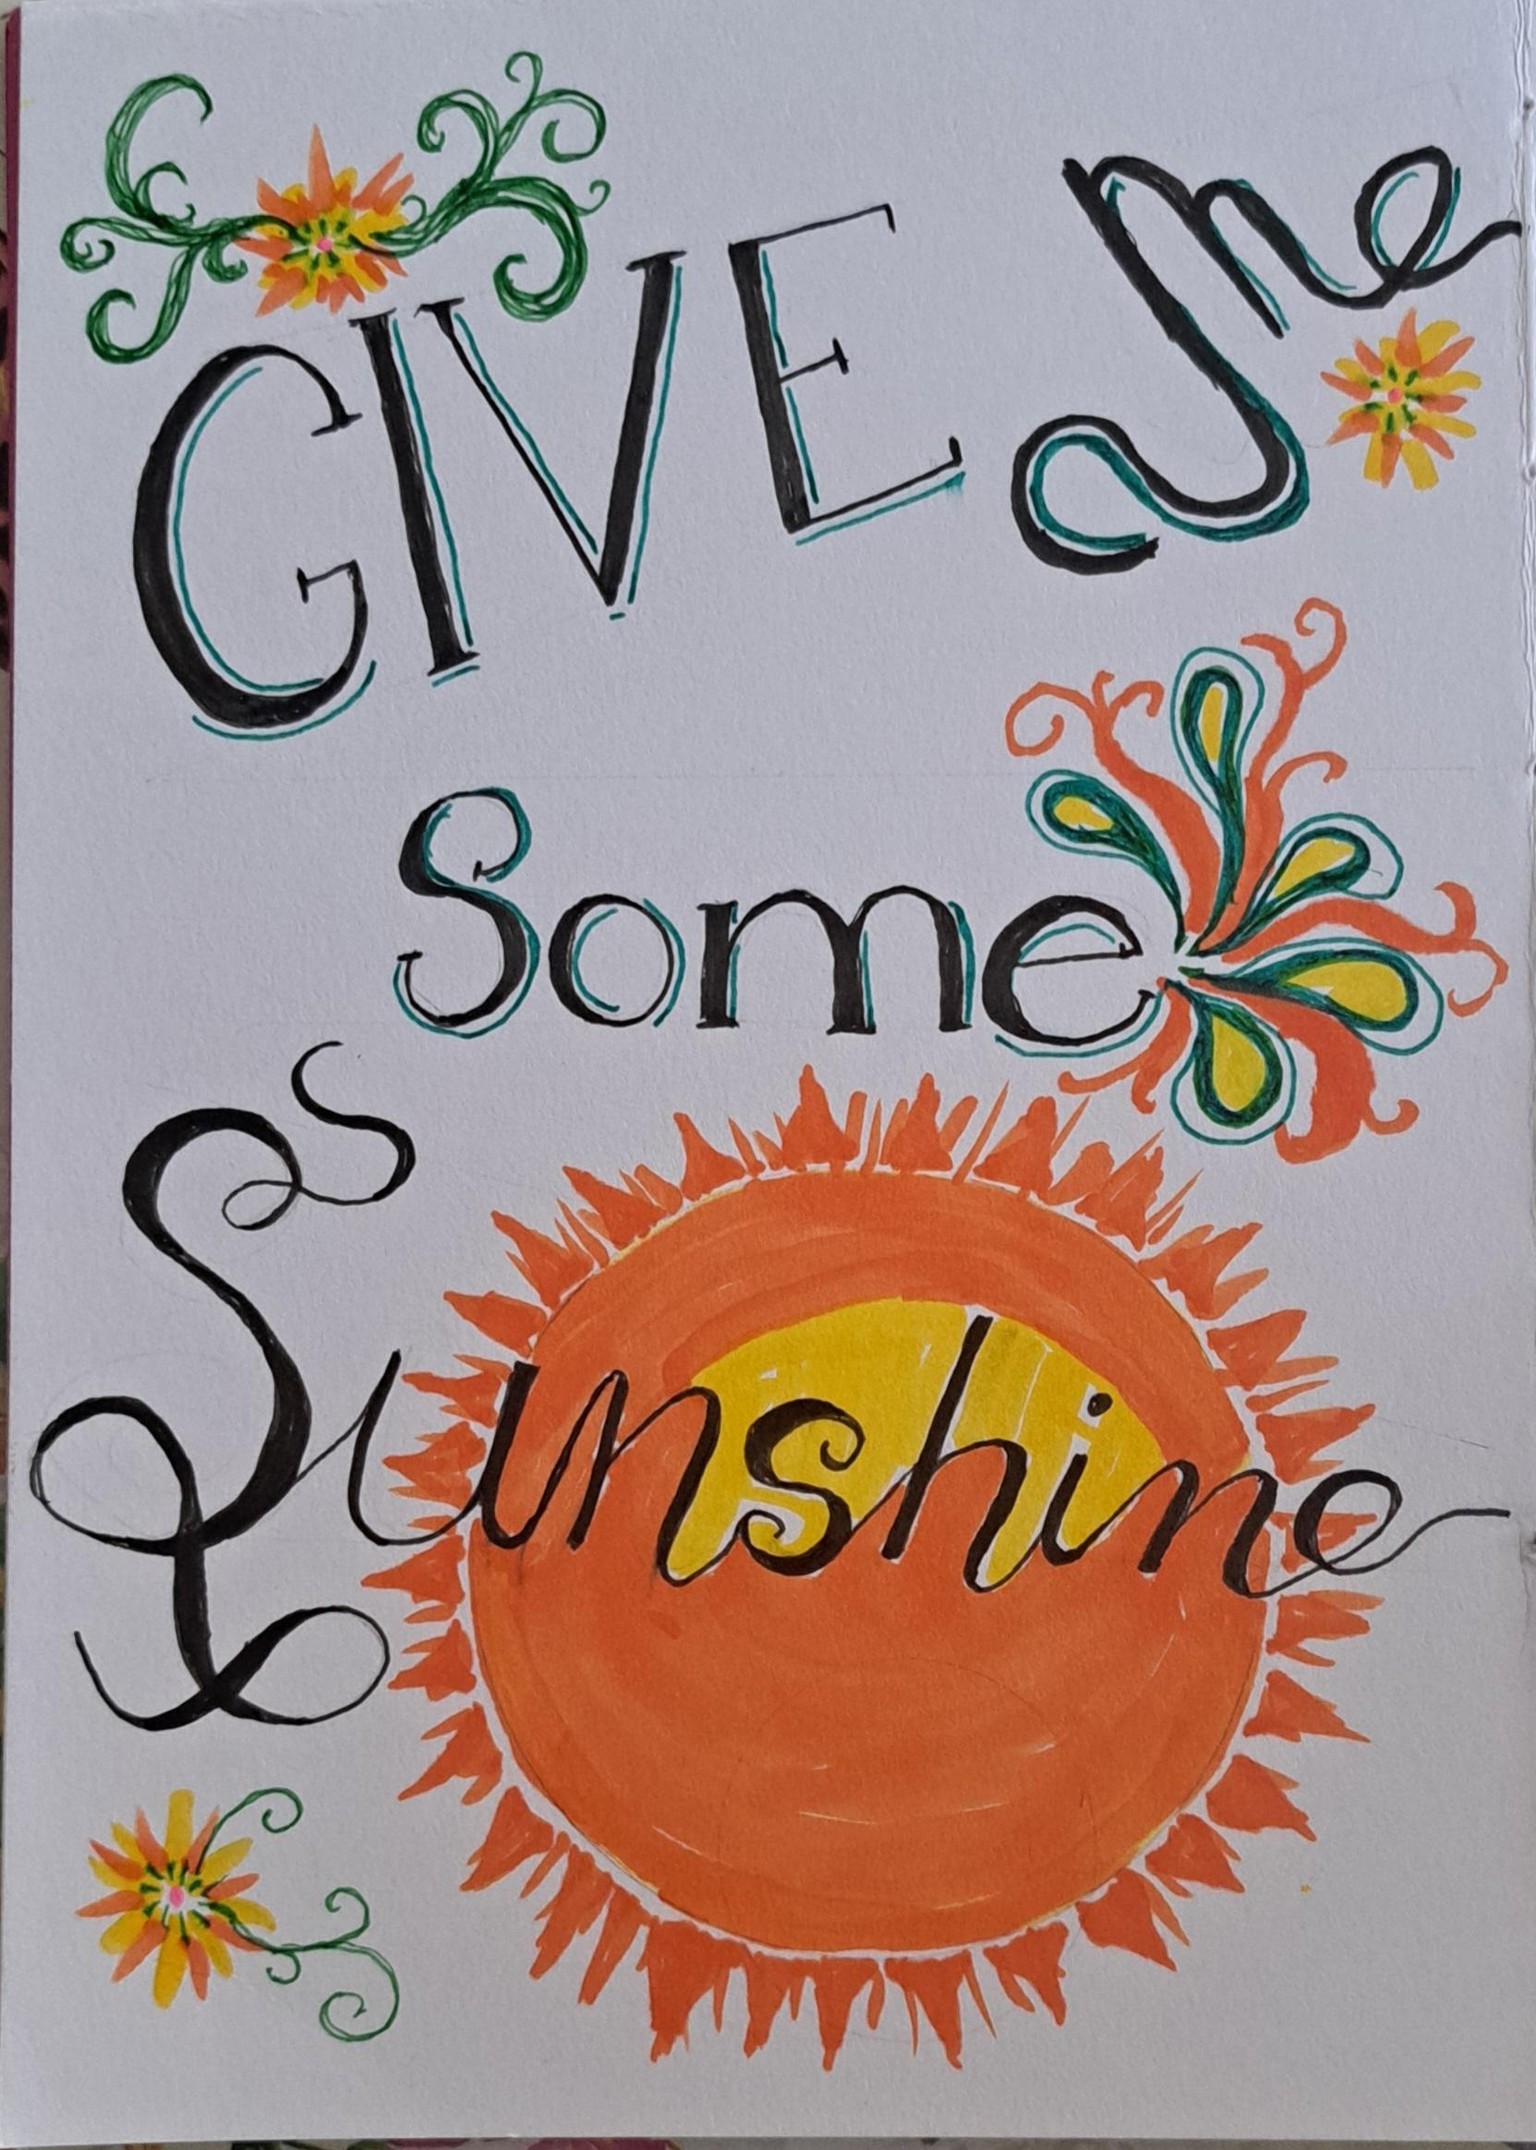 GIVE me
Some
Sunshine